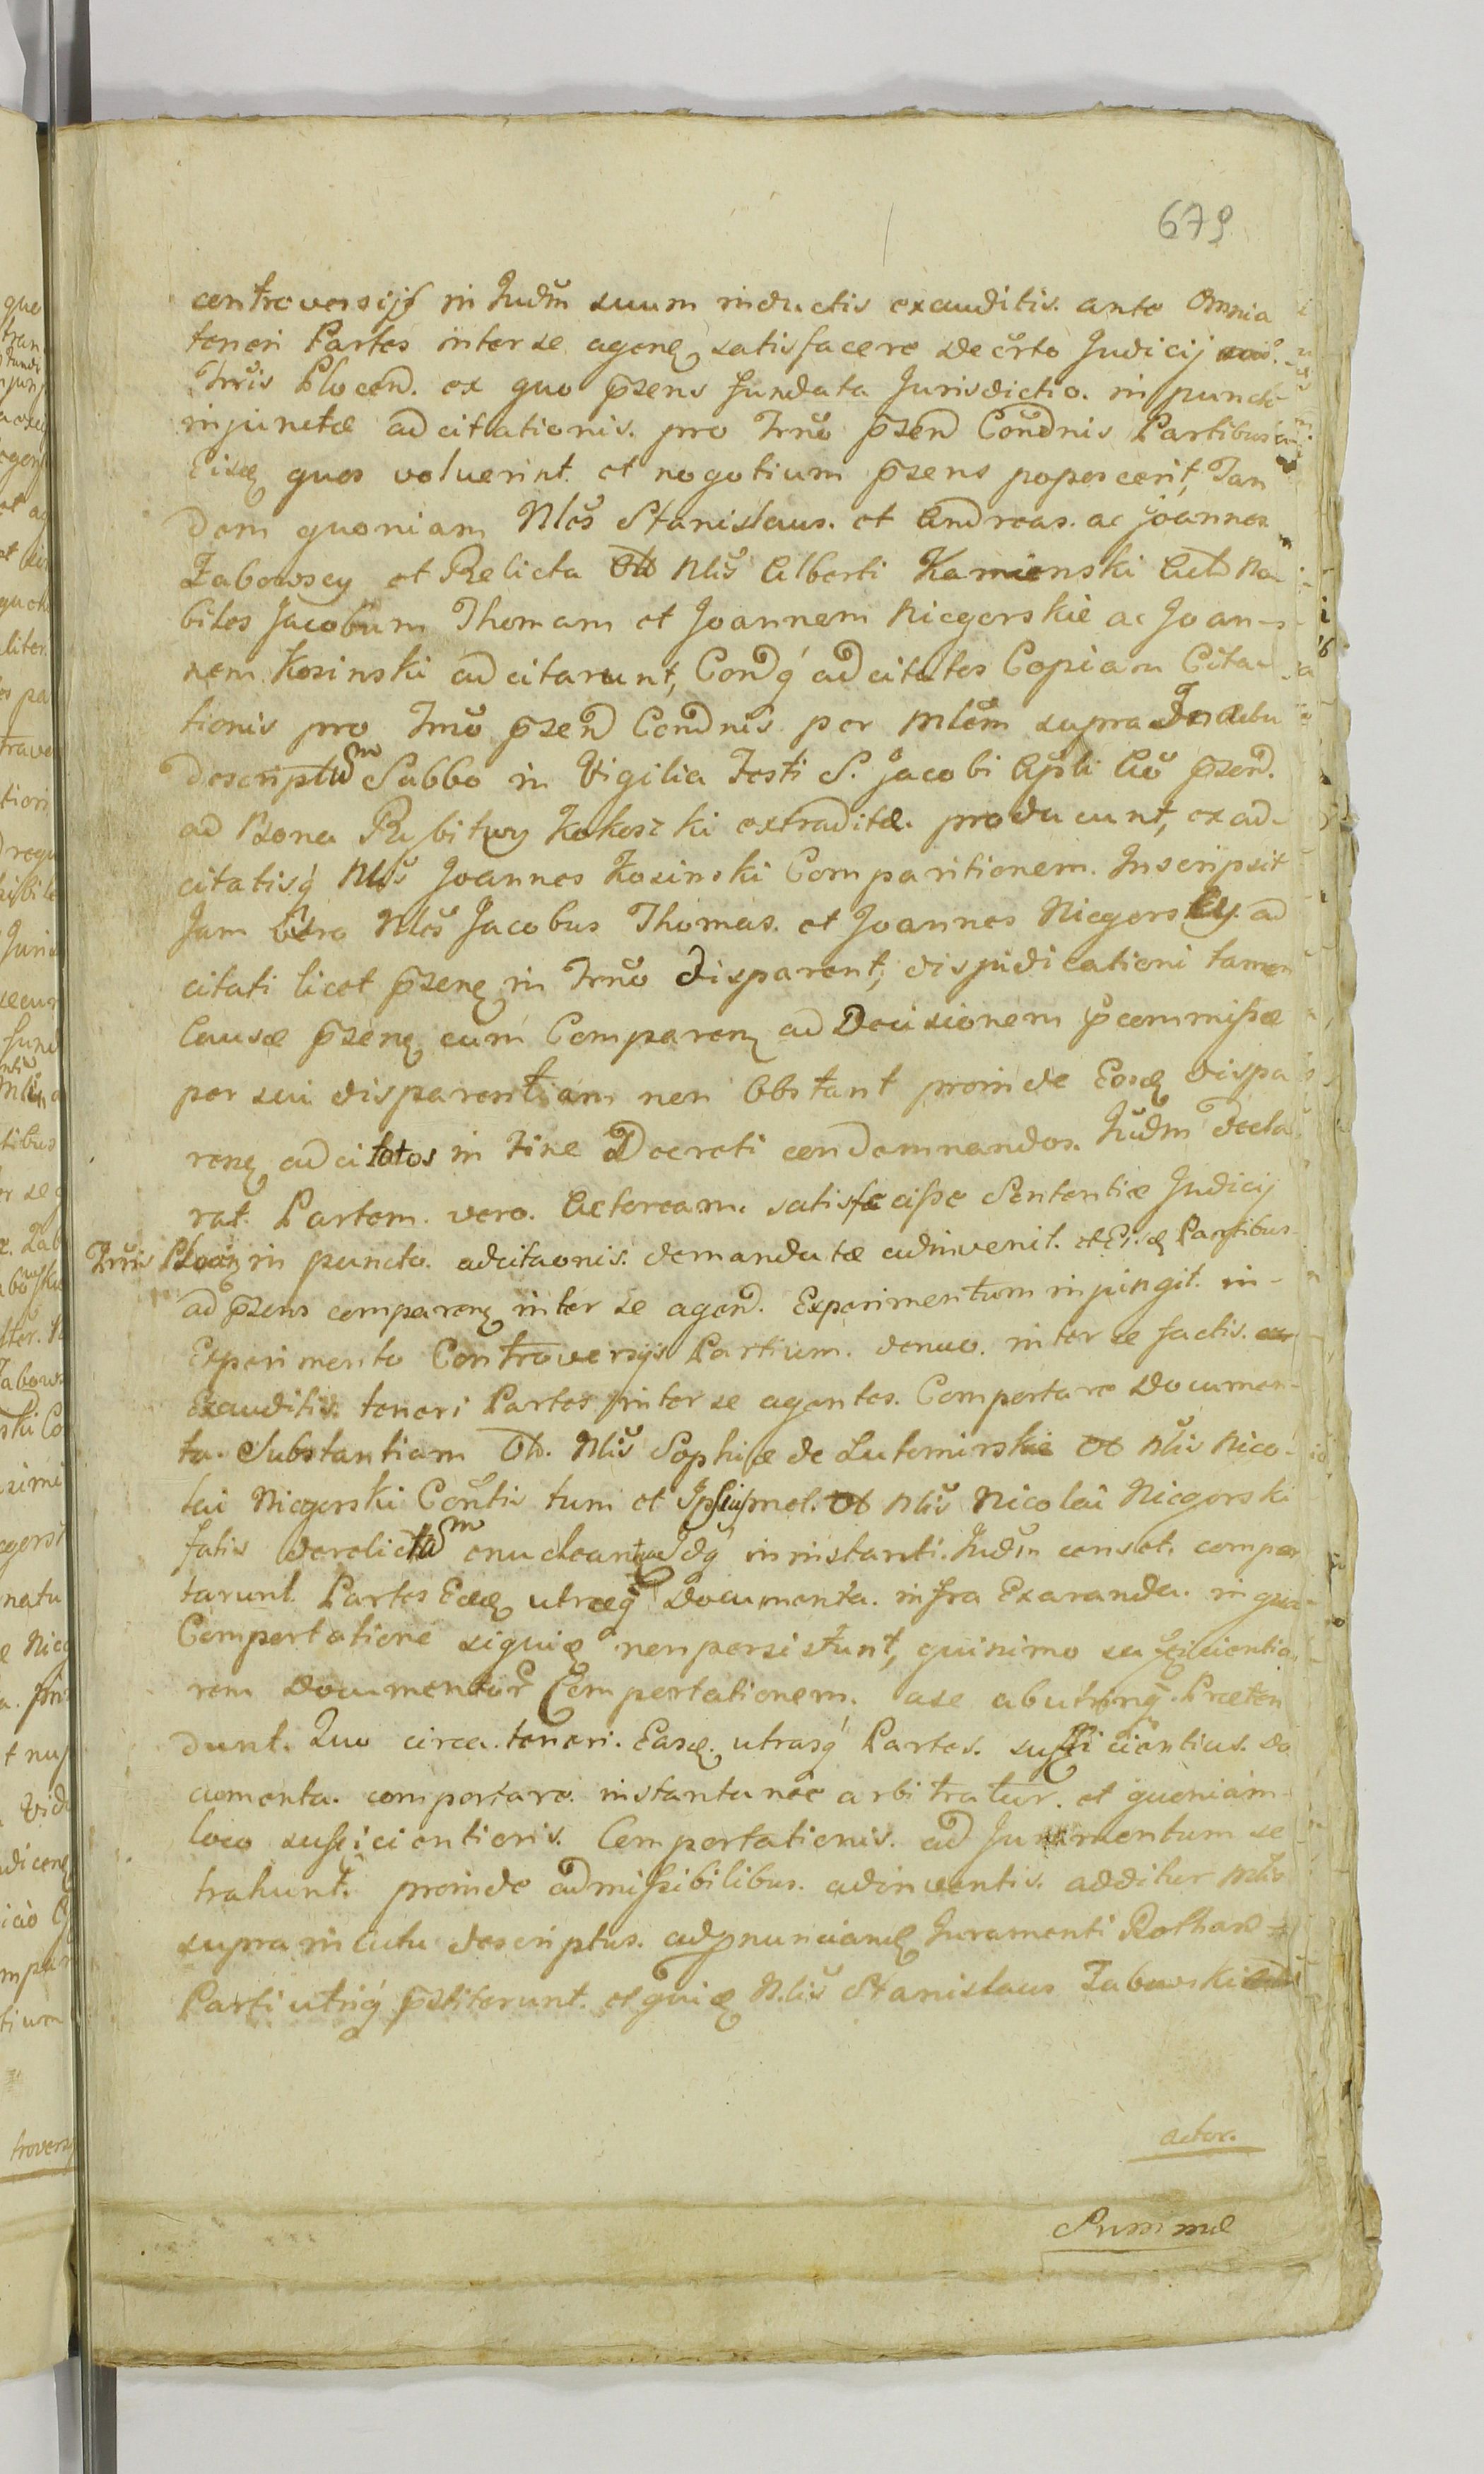 679
controversijs in Judm suum inductis exauditis. ante Omnia
teneri Partes inter se agenę satisfacere decrto Judicij
Trris Plocen. ex quo p̃sens fundata Jurisdictio. in puncto
injunctæ adcitationis. pro Trno p̃sen Condnis Partibus
Eisdę quos voluerint. et negotium p̃sens poposcerit, Tan
dem quoniam Nles Stanislaus. et Andreas. ac Joannes
Zabowscy et Relicta Ol Nlis Alberti Kamienski Act No
biles Jacobum Thomam et Joannem Niegorskie ac Joan-
nem Kosinski adcitarunt, Condq́ adcitates Copiam Cita-
tionis pro Trno p̃sen Condnis per Mlem supra In actu
descriptum Sabbo in Vigilia Festi S. Jacobi Apli Ao p̃send.
ad Bona Rybitwy Kokoszki extraditæ. producunt, ex ad-
citatisq́ Nlis Joannes Kosinski Comparitionem. Inscripsit
Jam Vero Nles Jacobus Thomas. et Joannes Niegorscy. ad
citati licet p̃senę in Trno disparent, dispudicationi tamen
Causæ p̃senę cum Comparenę ad Decisionem p̃commissæ
per sui disparentiam non Obstant proinde Eosdę dispa
renę adcitatos in Fine Decreti condemnandos. Judm decla
rat. Partem. vero. Actoream. satisfecisse Sententiæ Judicij
Trris Plocen in puncto. adcitaonis. demandatæ adinvenit. et Eisdę Partibus
ad p̃sens comparenę inter se agend. Experimentum injungit. in-
Experimento Controversijs Partium. denuo. inter se factis.
Exauditis. teneri Partes inter se agentes. Comportare Documen-
ta. Substantiam Ol. Nlis Sophiæ de Lutomirskie Ol Nlis Nico-
lai Niegorski Contis tum et Ipsiusmet. Ol Nlis Nicolai Niegorski
fatis derelictam enucleantia Idq́ in instanti. Judm censet. compor
tarunt. Partes Eædę utræq́ Documenta. infra Exaranda. in qua
Comportatione siquidę non persistunt, quinimo sufficientio
rem Documentor̃ Comportationem. a se abutrinq́. Præten
dunt. Quo circa. teneri. Easdę. utrasq́ Partes. sufficientius. Do
cumenta. comportare. instantanee arbitratur. et quoniam
loco sufficientioris. Comportationis. ad Juramentum se
trahunt. proinde admissibilibus. adinventis. additur Mlis
supra in actu descriptus. adp̃nunciandę Juramenti Rothan
Parti utriq́ p̃stiterunt. et quidę Nlis Stanislaus Zabowski
actor.
Summæ